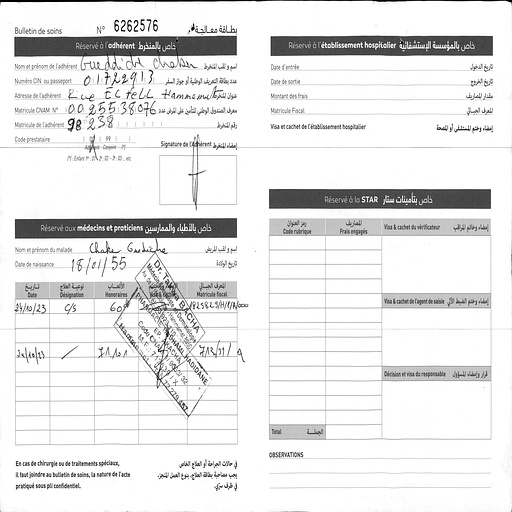 Bulletin de soins N° 6262576 بطاقة معالجة رقم
Réservé à l'adhérent خاص بالمنخرط
Nom et prénom de l'adhérent Gueddiche Chaker اسم و لقب المنخرط
Numéro CIN ou passeport 01722913 عدد بطاقة التعريف الوطنية أو جواز السفر
Adresse de l'adhérent Rue El Fell Hammamet عنوان المنخرط
Matricule CNAM N° 0025538076 معرف الصندوق الوطني للتأمين على المرض عدد
Matricule de l'adhérent 98238 رقم المنخرط
Code prestataire 99
Adhérent - Conjoint - (*)
(*) : Enfant 1er : 01 - 2 : 02 - 3 : 03 ... etc
Signature de l'Adhérent إمضاء المنخرط
Réservé aux médecins et praticiens خاص بالأطباء والممارسين
Nom et prénom du malade Chaker Gueddiche اسم و لقب المريض
Date de naissance 18/01/55 تاريخ الولادة
تاريخ Date نوعية العلاج Désignation الأتعاب Honoraires المعرف الجبائي Matricule fiscal
24/10/23 C/S 60
24/10/23 71,101
Dr. BACHA
En cas de chirurgie ou de traitements spéciaux,
il faut joindre au bulletin de soins, la nature de l'acte
pratiqué sous pli confidentiel.
في حالات الجراحة أو العلاج الخاص
يجب مصاحبة بطاقة العلاج، بنوع العمل المنجز،
في ظرف سري.
Réservé à l'établissement hospitalier خاص بالمؤسسة الإستشفائية
Date d'entrée تاريخ الدخول
Date de sortie تاريخ الخروج
Montant des frais مقدار المصاريف
Matricule Fiscal المعرف الجبائي
Visa et cachet de l'établissement hospitalier إمضاء وختم المستشفى أو المصحة
Réservé à la STAR خاص بتأمينات ستار
رمز العنوان Code rubrique المصاريف Frais engagés Visa & cachet du vérificateur إمضاء وخاتم المراقب
Visa & cachet de l'agent de saisie إمضاء وختم الضبط الآلي
Décision et visa du responsable قرار وإمضاء المسؤول
Total الجملة
OBSERVATIONS